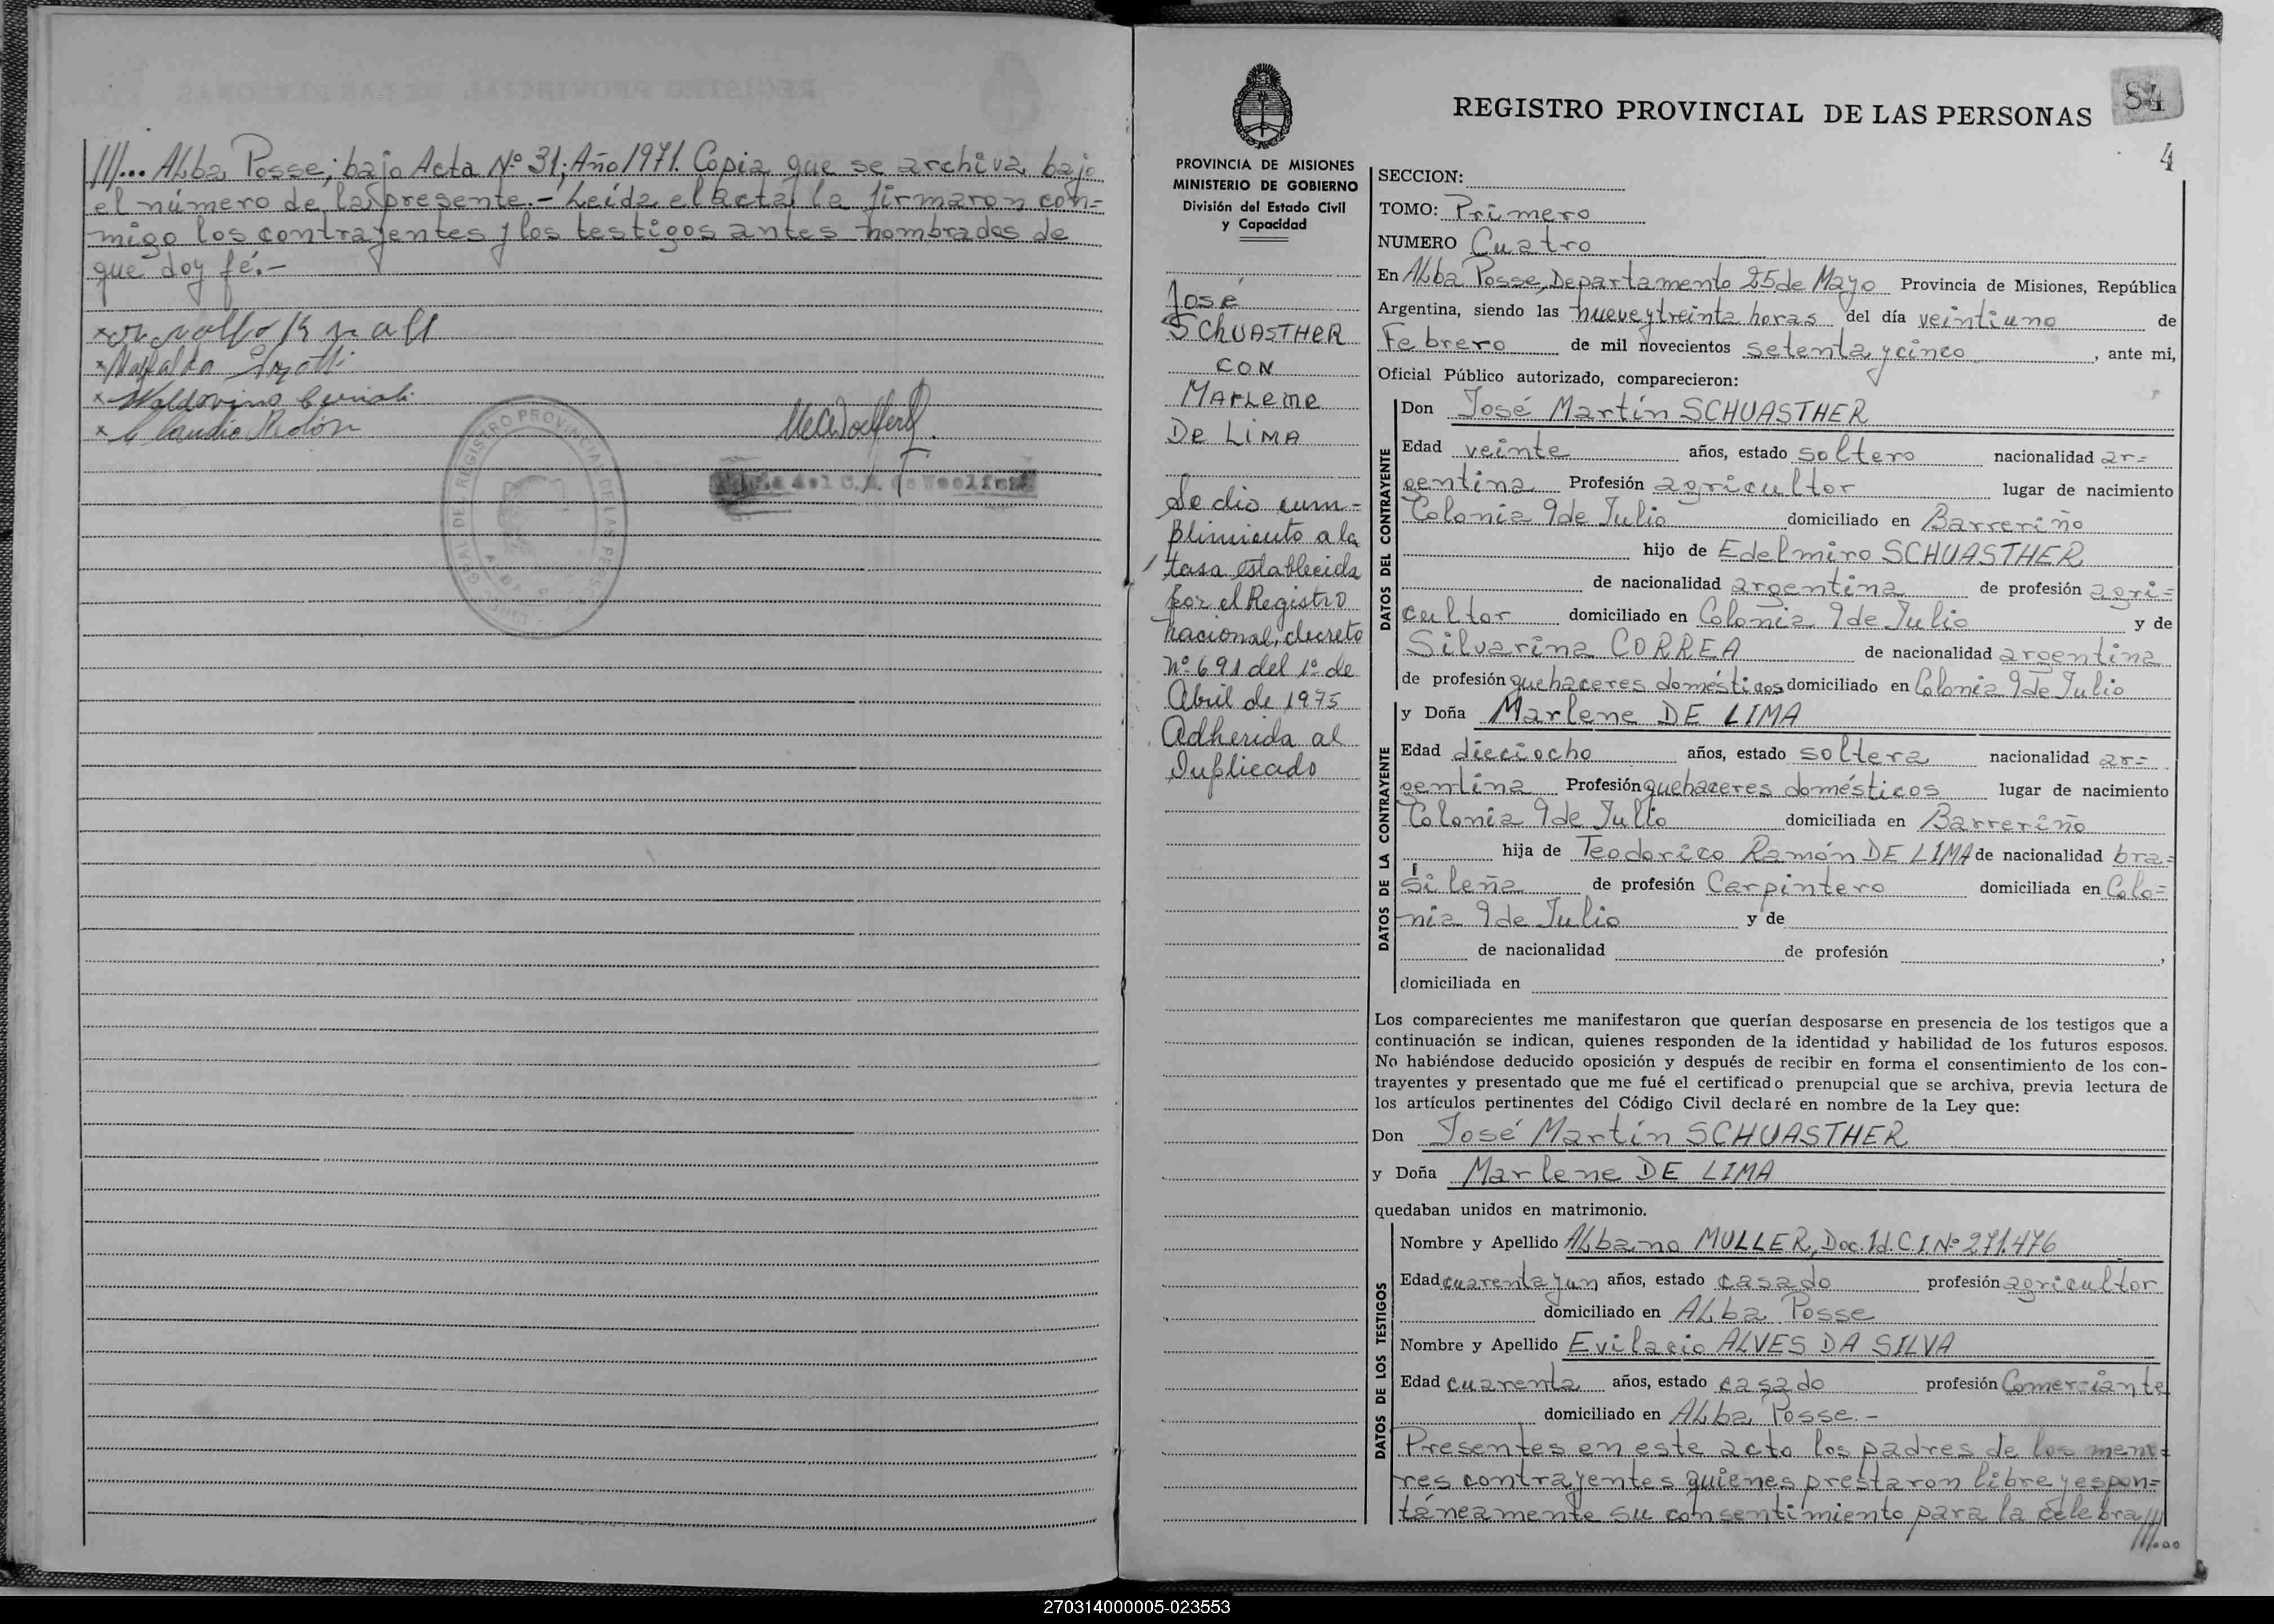 ///... Alba Posse; bajo Acta Nº 31; Año 1971. Copia que se archiva bajo
el número de la presente.- Leída el acta la firmaron con=
migo los contrayentes y los testigos antes nombrados de
que doy fé.-
Claudio Rolón
REGISTRO PROVINCIAL DE LAS PERSONAS
84
4
PROVINCIA DE MISIONES
MINISTERIO DE GOBIERNO
División del Estado Civil
y Capacidad
José
SCHUASTHER
CON
MARLENE
DE LIMA
Se dio cum=
plimiento a la
tasa establecida
por el Registro
Nacional, decreto
nº 691 del 1º de
Abril de 1975
Adherida al
Duplicado
SECCION:
TOMO: Primero
NUMERO Cuatro
En Alba Posse, Departamento 25 de Mayo Provincia de Misiones, República
Argentina, siendo las nueve y treinta horas del día veintiuno de
Febrero de mil novecientos setenta y cinco, ante mi,
Oficial Público autorizado, comparecieron:
DATOS DEL CONTRAYENTE
Don José Martín SCHUASTHER
Edad veinte años, estado soltero nacionalidad ar=
gentina Profesión agricultor lugar de nacimiento
Colonia 9 de Julio domiciliado en Barreriño
hijo de Edelmiro SCHUASTHER
de nacionalidad argentina de profesión agri=
cultor domiciliado en Colonia 9 de Julio y de
Silvarina CORREA de nacionalidad argentina
de profesión quehaceres domésticos domiciliado en Colonia 9 de Julio
DATOS DE LA CONTRAYENTE
y Doña Marlene DE LIMA
Edad dieciocho años, estado soltera nacionalidad ar=
gentina Profesión quehaceres domésticos lugar de nacimiento
Colonia 9 de Julio domiciliada en Barreriño
hija de Teodorico Ramón DE LIMA de nacionalidad bra=
sileña de profesión Carpintero domiciliada en Colo=
nia 9 de Julio y de
de nacionalidad de profesión ,
domiciliada en
Los comparecientes me manifestaron que querían desposarse en presencia de los testigos que a
continuación se indican, quienes responden de la identidad y habilidad de los futuros esposos.
No habiéndose deducido oposición y después de recibir en forma el consentimiento de los con-
trayentes y presentado que me fué el certificado prenupcial que se archiva, previa lectura de
los artículos pertinentes del Código Civil declaré en nombre de la Ley que:
Don José Martín SCHUASTHER
y Doña Marlene DE LIMA
quedaban unidos en matrimonio.
DATOS DE LOS TESTIGOS
Nombre y Apellido Albano MULLER, Doc. Id. C.I. Nº 271.476
Edad cuarenta y un años, estado casado profesión agricultor
domiciliado en Alba Posse
Nombre y Apellido Evilacio ALVES DA SILVA
Edad cuarenta años, estado casado profesión Comerciante
domiciliado en Alba Posse.-
Presentes en este acto los padres de los meno=
res contrayentes quienes prestaron libre y espon=
táneamente su consentimiento para la celebra///...
270314000005-023553